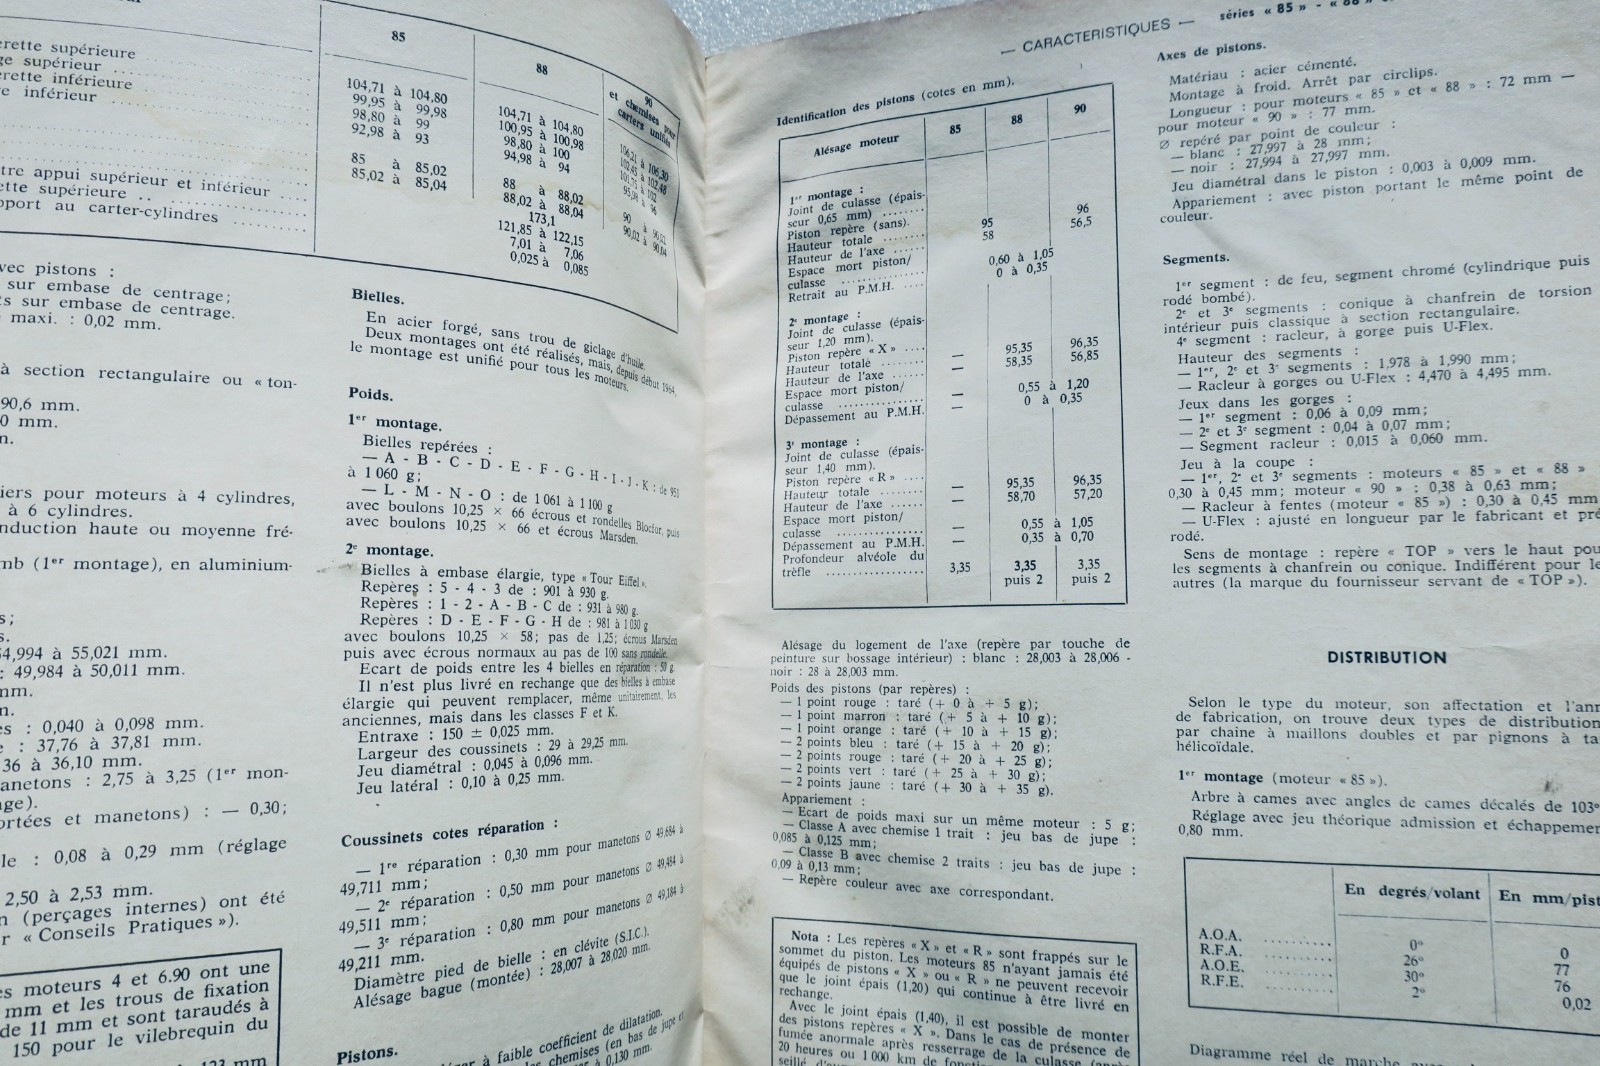 85
88
90
et chemises pour
carters unifiés
erette supérieure
ge supérieur
erette inférieure
e inférieur
tre appui supérieur et inférieur
ette supérieure
pport au carter-cylindres
104,71 à 104,80
99,95 à 99,98
98,80 à 99
92,98 à 93
85 à 85,02
85,02 à 85,04
104,71 à 104,80
100,95 à 100,98
98,80 à 100
94,98 à 94
88 à 88,02
88,02 à 88,04
173,1
121,85 à 122,15
7,01 à 7,06
0,025 à 0,085
106,21 à 106,30
102,45 à 102,48
101,75 à 102
95,98 à 96
90 à 90,02
90,02 à 90,04
vec pistons :
sur embase de centrage;
s sur embase de centrage.
maxi. : 0,02 mm.
à section rectangulaire ou « ton-
90,6 mm.
0 mm.
n.
iers pour moteurs à 4 cylindres,
à 6 cylindres.
nduction haute ou moyenne fré-
mb (1er montage), en aluminium-
s;
s.
54,994 à 55,021 mm.
: 49,984 à 50,011 mm.
mm.
n.
es : 0,040 à 0,098 mm.
e : 37,76 à 37,81 mm.
36 à 36,10 mm.
anetons : 2,75 à 3,25 (1er mon-
ge).
ortées et manetons) : — 0,30;
le : 0,08 à 0,29 mm (réglage
2,50 à 2,53 mm.
n (perçages internes) ont été
r « Conseils Pratiques »).
es moteurs 4 et 6.90 ont une
mm et les trous de fixation
de 11 mm et sont taraudés à
150 pour le vilebrequin du
123 mm
Bielles.
En acier forgé, sans trou de giclage d'huile.
Deux montages ont été réalisés, mais, depuis début 1964,
le montage est unifié pour tous les moteurs.
Poids.
1er montage.
Bielles repérées :
— A - B - C - D - E - F - G - H - I - J - K : de 951
à 1 060 g;
— L - M - N - O : de 1 061 à 1 100 g
avec boulons 10,25 × 66 écrous et rondelles Blocfor, puis
avec boulons 10,25 × 66 et écrous Marsden.
2e montage.
Bielles à embase élargie, type « Tour Eiffel ».
Repères : 5 - 4 - 3 de : 901 à 930 g.
Repères : 1 - 2 - A - B - C de : 931 à 980 g.
Repères : D - E - F - G - H de : 981 à 1 030 g
avec boulons 10,25 × 58; pas de 1,25; écrous Marsden
puis avec écrous normaux au pas de 100 sans rondelle.
Ecart de poids entre les 4 bielles en réparation : 50 g.
Il n'est plus livré en rechange que des bielles à embase
élargie qui peuvent remplacer, même unitairement, les
anciennes, mais dans les classes F et K.
Entraxe : 150 ± 0,025 mm.
Largeur des coussinets : 29 à 29,25 mm.
Jeu diamétral : 0,045 à 0,096 mm.
Jeu latéral : 0,10 à 0,25 mm.
Coussinets cotes réparation :
— 1re réparation : 0,30 mm pour manetons Ø 49,684 à
49,711 mm;
— 2e réparation : 0,50 mm pour manetons Ø 49,484 à
49,511 mm;
— 3e réparation : 0,80 mm pour manetons Ø 49,184 à
49,211 mm.
Diamètre pied de bielle : en clévite (S.I.C.).
Alésage bague (montée) : 28,007 à 28,020 mm.
Pistons.
à faible coefficient de dilatation.
chemises (en bas de jupe et
à 0,130 mm.
— CARACTERISTIQUES —
séries « 85 » - « 88 »
Identification des pistons (cotes en mm).
Alésage moteur
85
88
90
1er montage :
Joint de culasse (épais-
seur 0,65 mm)
Piston repère (sans).
Hauteur totale
95
96
Hauteur de l'axe
58
56,5
Espace mort piston/
culasse
0,60 à 1,05
Retrait au P.M.H.
0 à 0,35
2e montage :
Joint de culasse (épais-
seur 1,20 mm).
Piston repère « X »
Hauteur totale — 95,35 96,35
Hauteur de l'axe — 58,35 56,85
Espace mort piston/
culasse — 0,55 à 1,20
Dépassement au P.M.H. — 0 à 0,35
3e montage :
Joint de culasse (épais-
seur 1,40 mm).
Piston repère « R »
Hauteur totale — 95,35 96,35
Hauteur de l'axe — 58,70 57,20
Espace mort piston/
culasse — 0,55 à 1,05
Dépassement au P.M.H. — 0,35 à 0,70
Profondeur alvéole du
trèfle 3,35 3,35 3,35
puis 2 puis 2
Alésage du logement de l'axe (repère par touche de
peinture sur bossage intérieur) : blanc : 28,003 à 28,006 -
noir : 28 à 28,003 mm.
Poids des pistons (par repères) :
— 1 point rouge : taré (+ 0 à + 5 g);
— 1 point marron : taré (+ 5 à + 10 g);
— 1 point orange : taré (+ 10 à + 15 g);
— 2 points bleu : taré (+ 15 à + 20 g);
— 2 points rouge : taré (+ 20 à + 25 g);
— 2 points vert : taré (+ 25 à + 30 g);
— 2 points jaune : taré (+ 30 à + 35 g).
Appariement :
— Ecart de poids maxi sur un même moteur : 5 g;
— Classe A avec chemise 1 trait : jeu bas de jupe :
0,085 à 0,125 mm;
— Classe B avec chemise 2 traits : jeu bas de jupe :
0,09 à 0,13 mm;
— Repère couleur avec axe correspondant.
Nota : Les repères « X » et « R » sont frappés sur le
sommet du piston. Les moteurs 85 n'ayant jamais été
équipés de pistons « X » ou « R » ne peuvent recevoir
que le joint épais (1,20) qui continue à être livré en
rechange.
Avec le joint épais (1,40), il est possible de monter
des pistons repères « X ». Dans le cas de présence de
fumée anormale après resserrage de la culasse (après
20 heures ou 1 000 km de
Axes de pistons.
Matériau : acier cémenté.
Montage à froid. Arrêt par circlips.
Longueur : pour moteurs « 85 » et « 88 » : 72 mm —
pour moteur « 90 » : 77 mm.
Ø repéré par point de couleur :
— blanc : 27,997 à 28 mm;
— noir : 27,994 à 27,997 mm.
Jeu diamétral dans le piston : 0,003 à 0,009 mm.
Appariement : avec piston portant le même point de
couleur.
Segments.
1er segment : de feu, segment chromé (cylindrique puis
rodé bombé).
2e et 3e segments : conique à chanfrein de torsion
intérieur puis classique à section rectangulaire.
4e segment : racleur, à gorge puis U-Flex.
Hauteur des segments :
— 1er, 2e et 3e segments : 1,978 à 1,990 mm;
— Racleur à gorges ou U-Flex : 4,470 à 4,495 mm.
Jeux dans les gorges :
— 1er segment : 0,06 à 0,09 mm;
— 2e et 3e segment : 0,04 à 0,07 mm;
— Segment racleur : 0,015 à 0,060 mm.
Jeu à la coupe :
— 1er, 2e et 3e segments : moteurs « 85 » et « 88 »
0,30 à 0,45 mm; moteur « 90 » : 0,38 à 0,63 mm;
— Racleur à fentes (moteur « 85 ») : 0,30 à 0,45 mm
— U-Flex : ajusté en longueur par le fabricant et pré
rodé.
Sens de montage : repère « TOP » vers le haut pou
les segments à chanfrein ou conique. Indifférent pour le
autres (la marque du fournisseur servant de « TOP »).
DISTRIBUTION
Selon le type du moteur, son affectation et l'ann
de fabrication, on trouve deux types de distribution
par chaine à maillons doubles et par pignons à ta
hélicoïdale.
1er montage (moteur « 85 »).
Arbre à cames avec angles de cames décalés de 103°
Réglage avec jeu théorique admission et échappemen
0,80 mm.
En degrés/volant
En mm/pist
A.O.A. 0° 0
R.F.A. 26° 77
A.O.E. 30° 76
R.F.E. 2° 0,02
Diagramme réel de marche